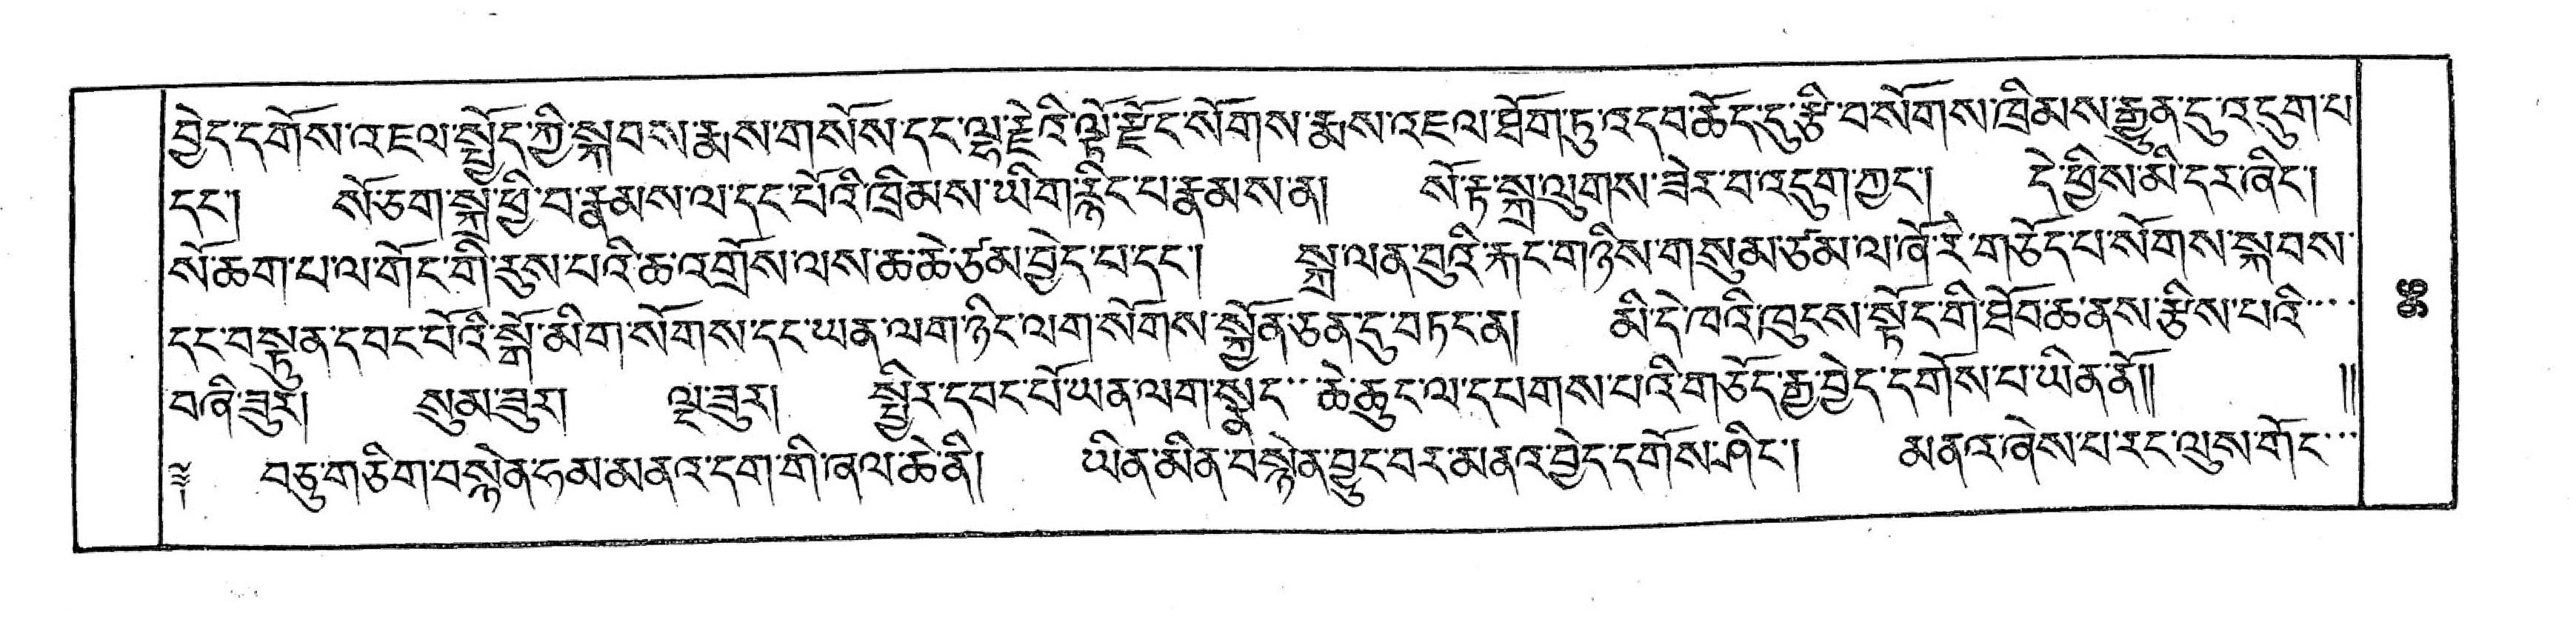 བྱེད་དགོས་འཇལ་སྤྱོད་ཀྱི་སྐབས་རྣམས་གསོས་དང་ལྷ་རྗེའི་ལྟོ་རྫོང་སོགས་རྣམས་འཇལ་ཐོག་ཏུ་འདབ་ཆོད་དུ་རྩི་བ་སོགས་ཁྲིམས་རྒྱུན་དུ་འདུག་པ
དང་། སོ་ཅག་སྐྲ་ཕྱི་བ་རྣམས་ལ་དང་པོའི་ཁྲིམས་ཡིག་རྙིང་པ་རྣམས་ན། སོ་རྟ་སྐྲ་ལུགས་ཟེར་བ་འདུག་ཀྱང་། དེ་ཕྱིས་མི་དར་ཞིང་།
སོ་ཆག་པ་ལ་གོང་གི་རུས་པའི་ཆ་འགྲོས་ལས་ཆ་ཆེ་ཙམ་བྱེད་པ་དང་། སྐྲ་ལན་བུའི་རྐང་གཉིས་གསུམ་ཙམ་ལ་ཞོ་རེ་གཅོད་པ་སོགས་སྐབས་
དང་བསྟུན་དབང་པོའི་སྒོ་མིག་སོགས་དང་ཡན་ལག་ཉིང་ལག་སོགས་སྐྱོན་ཅན་དུ་བཏང་ན། མི་དེ་ཁའི་ཁུངས་སྟོང་གི་ཐོབ་ཆ་ནས་རྩིས་པའི
བཞི་ཟུར། སུམ་ཟུར། ལྔ་ཟུར། སྤྱིར་དབང་པོ་ཡན་ལག་སྣད་ཆེ་ཆུང་ལ་དཔགས་པའི་གཅོད་རྒྱ་བྱེད་དགོས་པ་ཡིན་ནོ།། །།
༈ བཅུ་གཅིག་བསྙེན་ཧམ་མནའ་དག་གི་ཞལ་ཆེ་ནི། ཡིན་མིན་བསྙེན་བྱུང་བར་མནའ་བྱེད་དགོས་ཤིང་། མནའ་ཞེས་པ་རང་ལུས་གོང